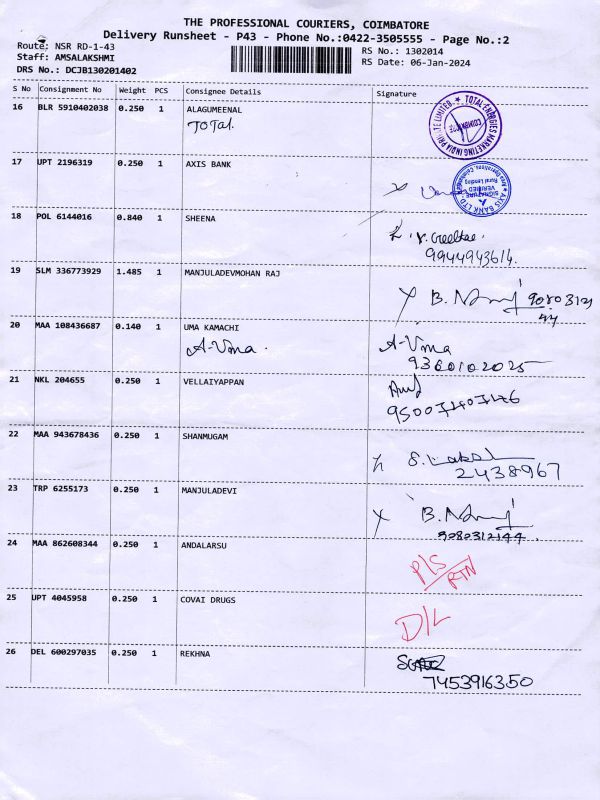 THE PROFESSIONAL COURIERS, COIMBATORE
Delivery Runsheet - P43 - Phone No.:0422-3505555 - Page No.:2
Route: NSR RD-1-43
RS No.: 1302014
Staff: AMSALAKSHMI
RS Date: 06-Jan-2024
DRS No.: DCJB130201402
S No Consignment No Weight PCS Consignee Details Signature
16 BLR 5910402038 0.250 1 ALAGUMEENAL
TOTAL
TOTAL-ENERGIES MARKETING INDIA PRIVATE LIMITED
COIMBATORE
17 UPT 2196319 0.250 1 AXIS BANK
AXIS BANK LTD
SIGNATURE VERIFIED
Rural Lending
18 POL 6144016 0.840 1 SHEENA
9944943614
19 SLM 336773929 1.485 1 MANJULADEVMOHAN RAJ
X B. 9080312144
20 MAA 108436687 0.140 1 UMA KAMACHI A-Uma
A-Uma
9360102025
21 NKL 204655 0.250 1 VELLAIYAPPAN
22 MAA 943678436 0.250 1 SHANMUGAM
2438967
23 TRP 6255173 0.250 1 MANJULADEVI
X B.
9080312144
24 MAA 862608344 0.250 1 ANDALARSU
P/S
RTN
25 UPT 4045958 0.250 1 COVAI DRUGS
D/L
26 DEL 600297035 0.250 1 REKHNA
7453916350